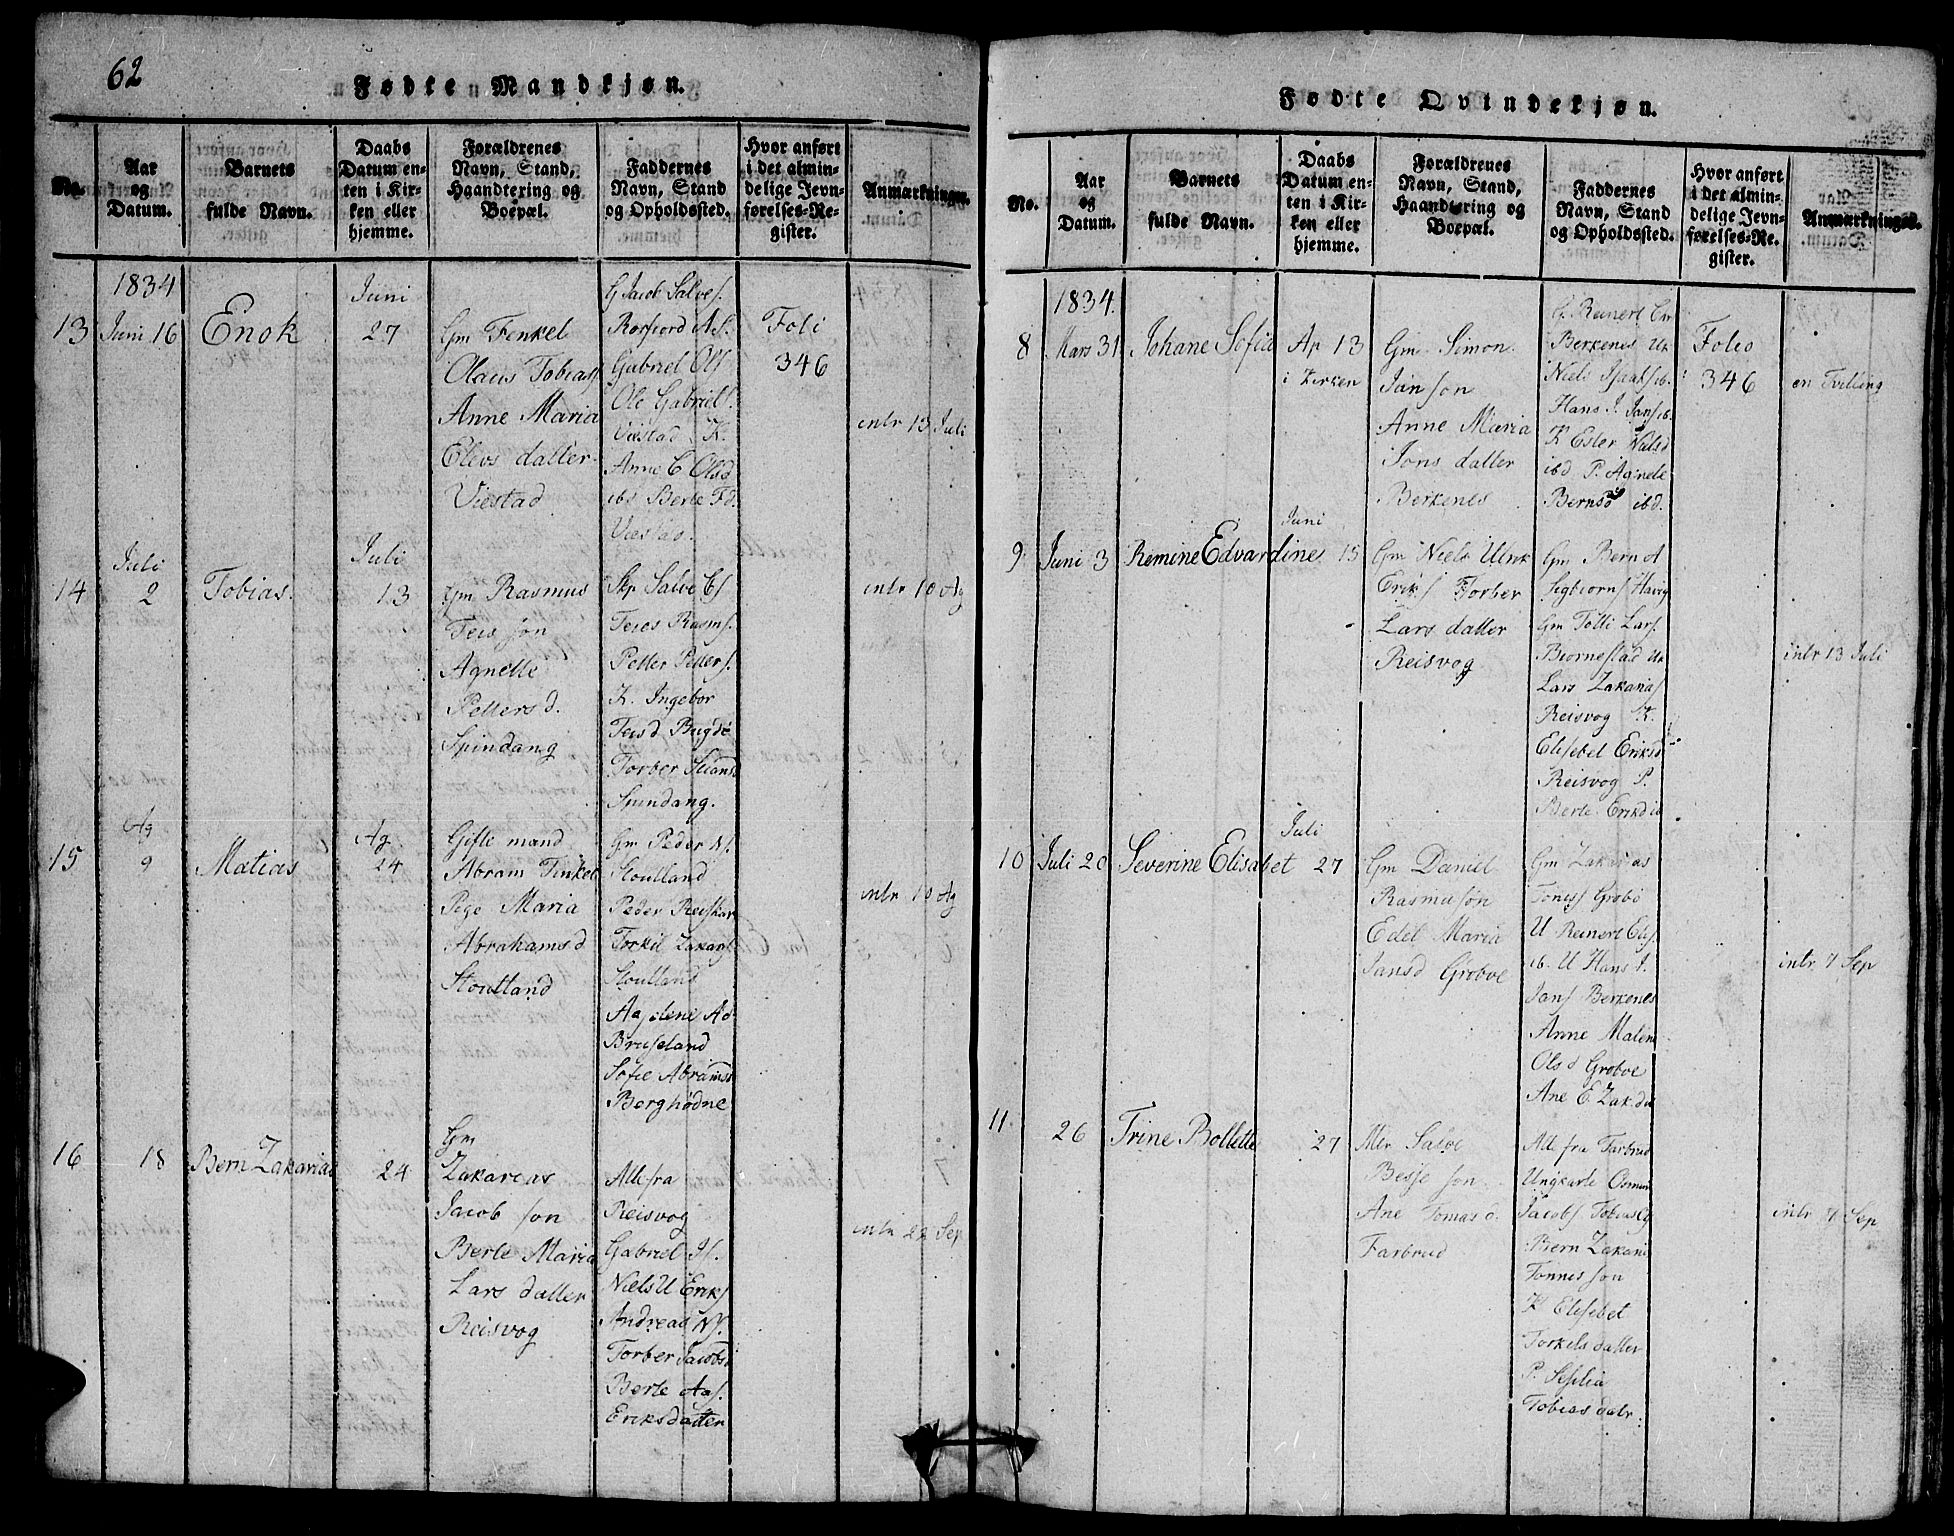 62
Fødte Mandkjøn.
No.
Aar
og
Datum.
Barnets
fulde Navn.
Daabs
Datum en-
ten i Kir-
ken eller
hjemme.
Forældrenes
Navn, Stand,
Haandtering og
Boepæl.
Faddernes
Navn, Stand
og Opholdssted.
Hvor anført
i det almin-
delige Jevn-
førelses-Re-
gister.
Anmærkninger.
1834
13 Juni 16
Enok
Juni
27
Gm Fenkel
Olaus Tobias
Anne Maria
Elevs datter
Viestad
G Jacob Salves.
Rosfiord As.
Gabriel Ols
Ole Gabriels.
Viestad K.
Anne C Olsd
ibs Berte Fd.
Viestad.
Foli
346
intr 13 Juli
14
Juli
2
Tobias.
Juli
13
Gm Rasmus
Teis son
Agnette
Petters d.
Spindang
Skp Salve Cs
Teies Rasms.
Petter Petters.
K. Ingebor
Teisd Bugde
Torber Stians
Spindang.
intr 10 Ag
15
Ag
9
Matias
Ag.
24
Gifte mand
Abram Finkel
Pige Maria
Abrahamsd
Stoutland
Gm Peder N.
Stoutland
Peder Reiskar
Torkil Zakars
Stoutland
Agdene Ad
Bruseland
Sofie Abrams
Berghødne
intr 10 Ag
16
18
Bern Zakarias
24
Gm
Zakareas
Jacob son
Berte Maria
Lars datter
Reisvog
Alle fra
Reisvog
Gabriel Js.
Niels U Eriks
Andreas Ns.
Torber Jacobs
Berte Aas.
Eriksdatter
intr 22 Sep
Fødte Qvindekjøn.
No.
Aar
og
Datum.
Barnets
fulde Navn.
Daabs
Datum en-
ten i Kir-
ken eller
hjemme.
Forældrenes
Navn, Stand,
Haandtering og
Boepæl.
Faddernes
Navn, Stand
og Opholdssted.
Hvor anført
i det almin-
delige Jevn-
førelses-Re-
gister.
Anmærkninger.
1834.
8 Mars 31
Johane Sofia
Ap 13
i Kirken
Gm Simon
Jansøn
Anne Maria
Jons datter
Berkenes
G. Reinert Chr
Berkenes Uk
Niels Isaaks ib.
Hans J. Jans ib.
K Ester Nielsd
ibd P. Agnete
Bernsd ibd.
Folio
346
en Tvilling
9 Juni 3
Remine Edvardines
Juni
15
Gm Niels Ulrik
Eriks Forber
Lars datter
Reisvog
Gm Bern A
Segbiorns Havig
Gm Tolli Lars.
Biornestad Uk
Lars Zakarias
Reisvog K.
Elisebet Eriksd
Reisvog P.
Berte Eriksd ib
intr 13 Juli
10 Juli 20
Severine Elisabet
Juli
27
Gm Daniel
Rasmusøn
Edel Maria
Jansd Groboe
Gm Zakarias
Toness Grobo
U Reinert Elis.
ib. U Hans J.
Jans Berkenes
Anne Malene
Olsd Groboe
Ane E. Zak.de
intr 7 Sep
11
26
Trine Bollette
27
Mer Salve
Besse son
Ane Tomas d.
Farbrud
Alle fra Farbrud
Ungkarle Osmun
Jacobs Tobias
Bern Zakari
Tonnes son
K Elisebet
Torkels datter
P. Sesilia
Tobias datr:
intr 7 Sep